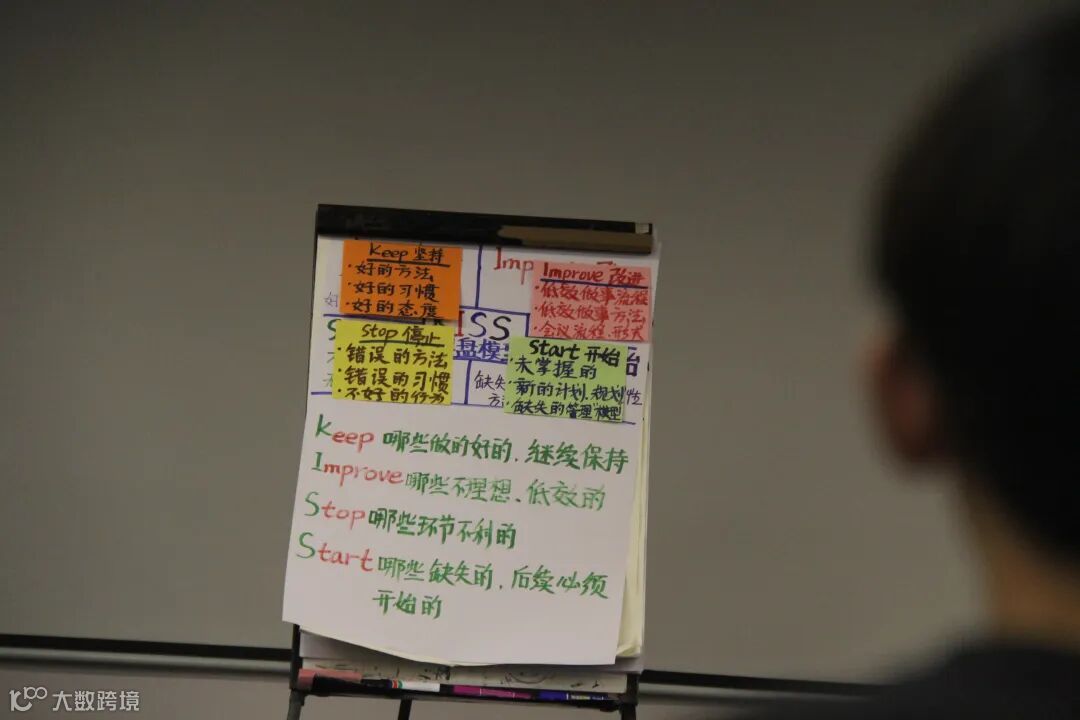 Keep 坚持
·好的方法
·好的习惯
·好的态度
Imp
Improve 改进
·低效做事流程
·低效做事方法
·会议流程、形式
ISS
盘模
Stop 停止
·错误的方法
·错误的习惯
·不好的行为
Start 开始
·未掌握的
·新的计划、规划
·缺失的管理"模型
始
缺失
方
性
Keep 哪些做的好的、继续保持
Improve 哪些不理想、低效的
Stop 哪些环节不利的
Start 哪些缺失的、后续必须
开始的
大数跨境